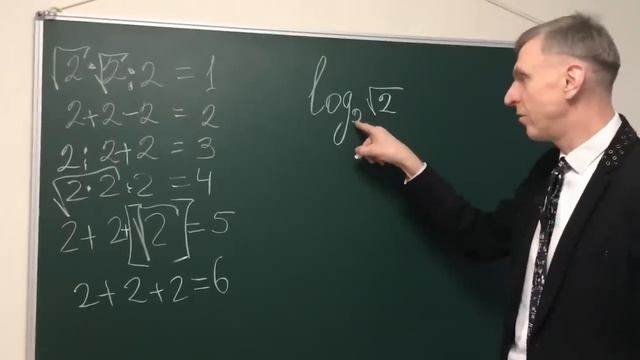 √2·√2:2=1
2+2-2=2
2:2+2=3
√2·2·2=4
2+2+[√2]=5
2+2+2=6
log₂√2